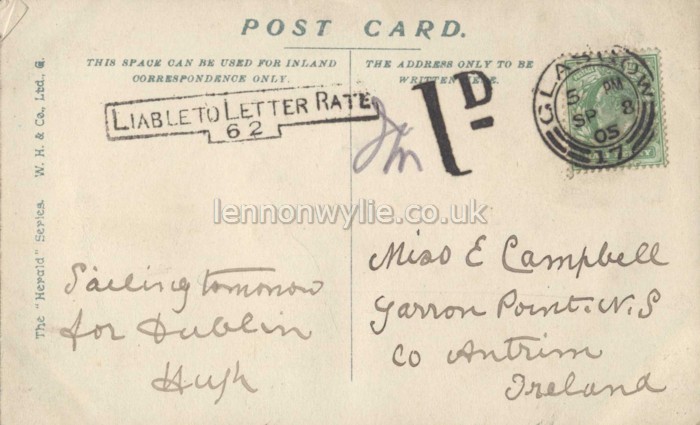 POST CARD.
THIS SPACE CAN BE USED FOR INLAND
CORRESPONDENCE ONLY.
THE ADDRESS ONLY TO BE
WRITTEN HERE.
LIABLE TO LETTER RATE
62
1D
GLASGOW
5 PM
SP 8
05
17
lennonwylie.co.uk
The "Herald" Series. W. H. & Co., Ltd., G.
Sailing tomorrow
for Dublin
Hugh
Miss E Campbell
Garron Point. N.S
Co Antrim
Ireland